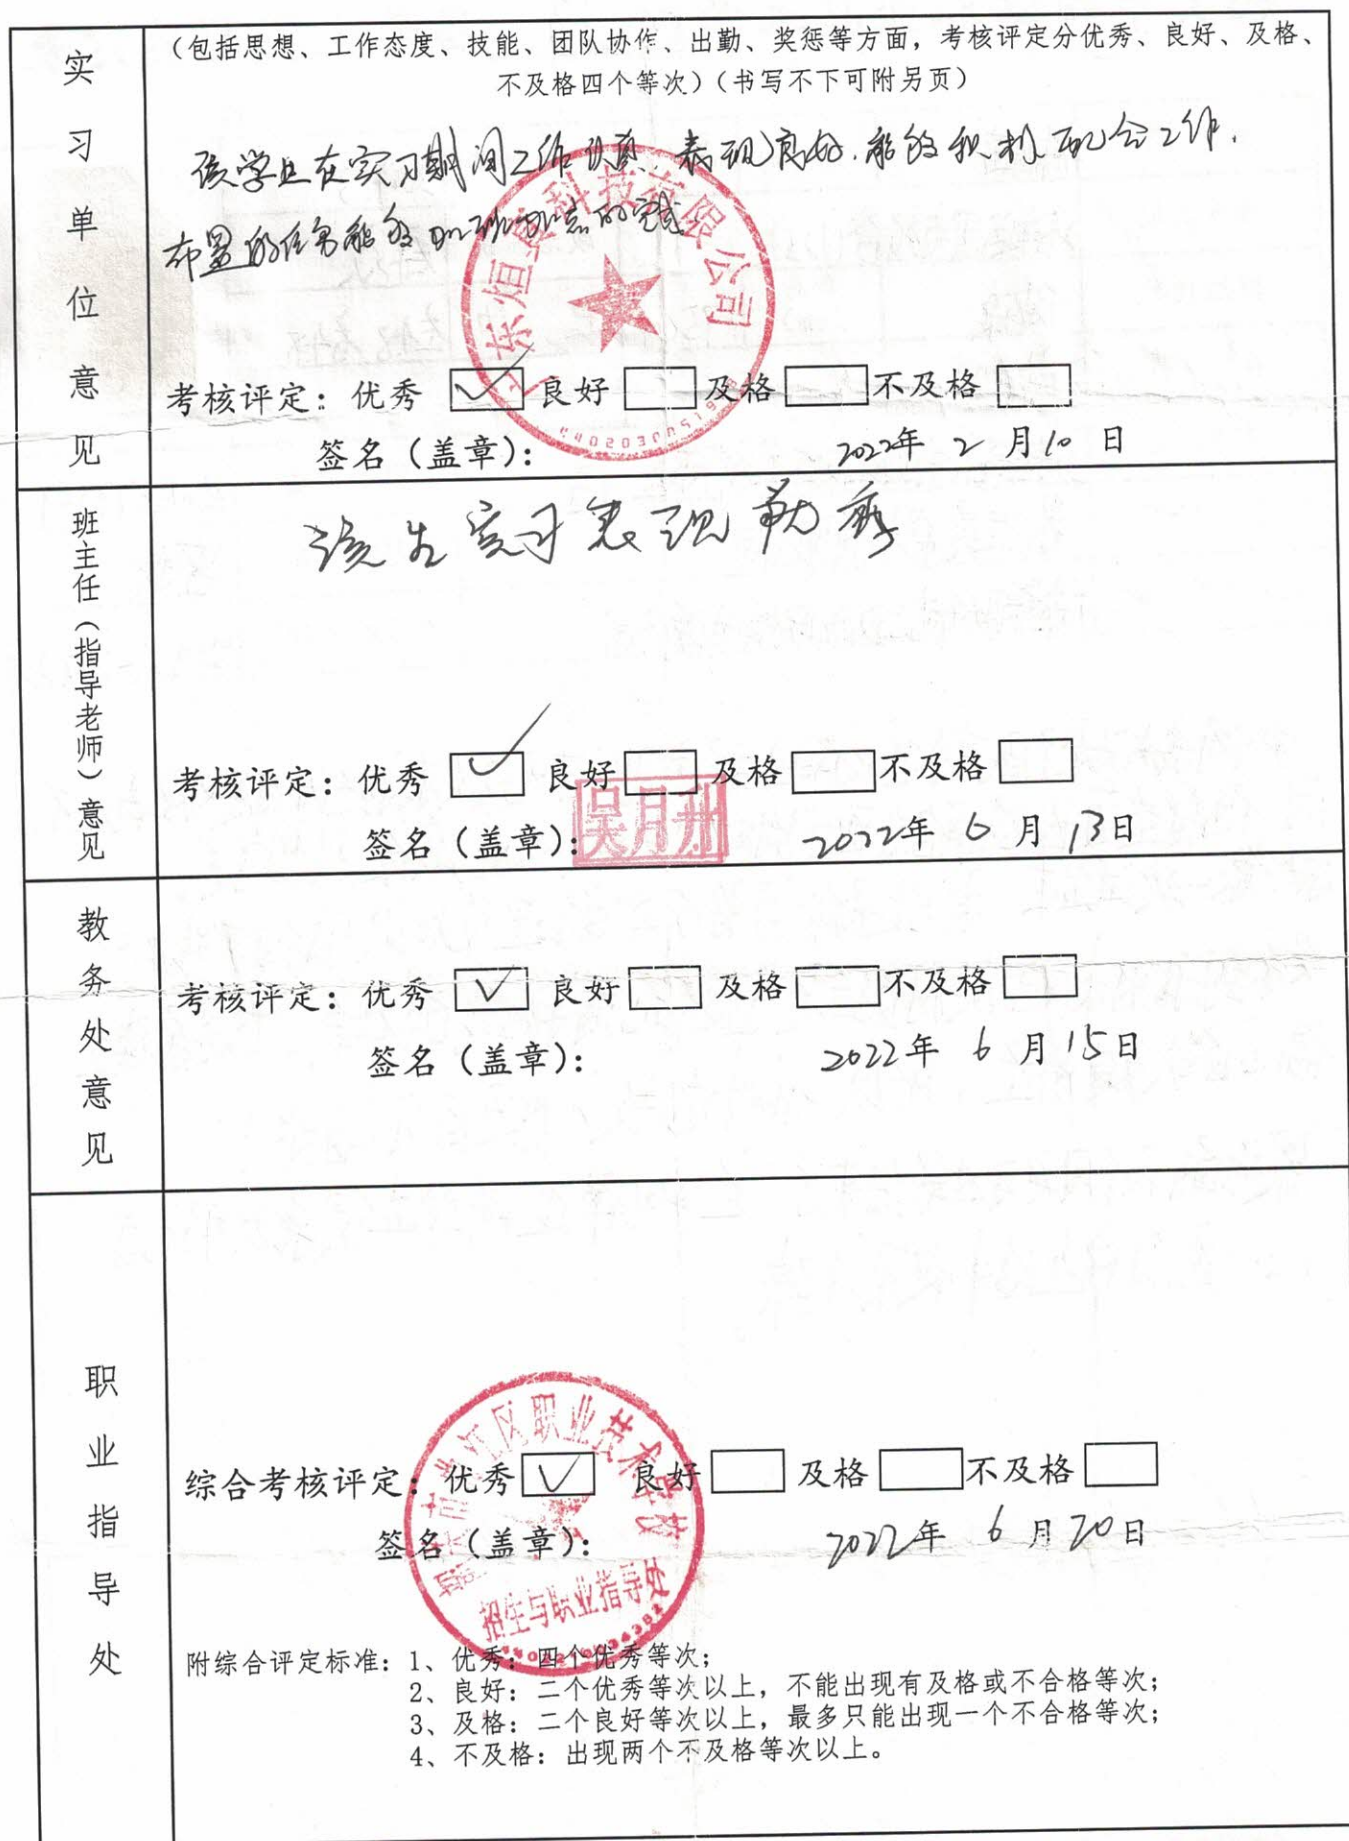 实习单位意见
（包括思想、工作态度、技能、团队协作、出勤、奖惩等方面，考核评定分优秀、良好、及格、
不及格四个等次）（书写不下可附另页）
该学生在实习期间工作认真，表现良好，能够积极配合工作，
布置的任务能够 的完成
广东恒 科技有限公司
考核评定：优秀 良好 及格 不及格
签名（盖章）： 2022年 2 月 10 日
班主任（指导老师）意见
该生实习表现 秀
考核评定：优秀 良好 及格 不及格
签名（盖章）： 吴月 2022年 6 月 13日
教务处意见
考核评定：优秀 良好 及格 不及格
签名（盖章）： 2022年 6 月 15日
职业指导处
综合考核评定：优秀 良好 及格 不及格
签名（盖章）： 2022年 6 月 20日
市 江区职业技术学校
招生与职业指导处
附综合评定标准：1、优秀：四个优秀等次；
2、良好：二个优秀等次以上，不能出现有及格或不合格等次；
3、及格：二个良好等次以上，最多只能出现一个不合格等次；
4、不及格：出现两个不及格等次以上。